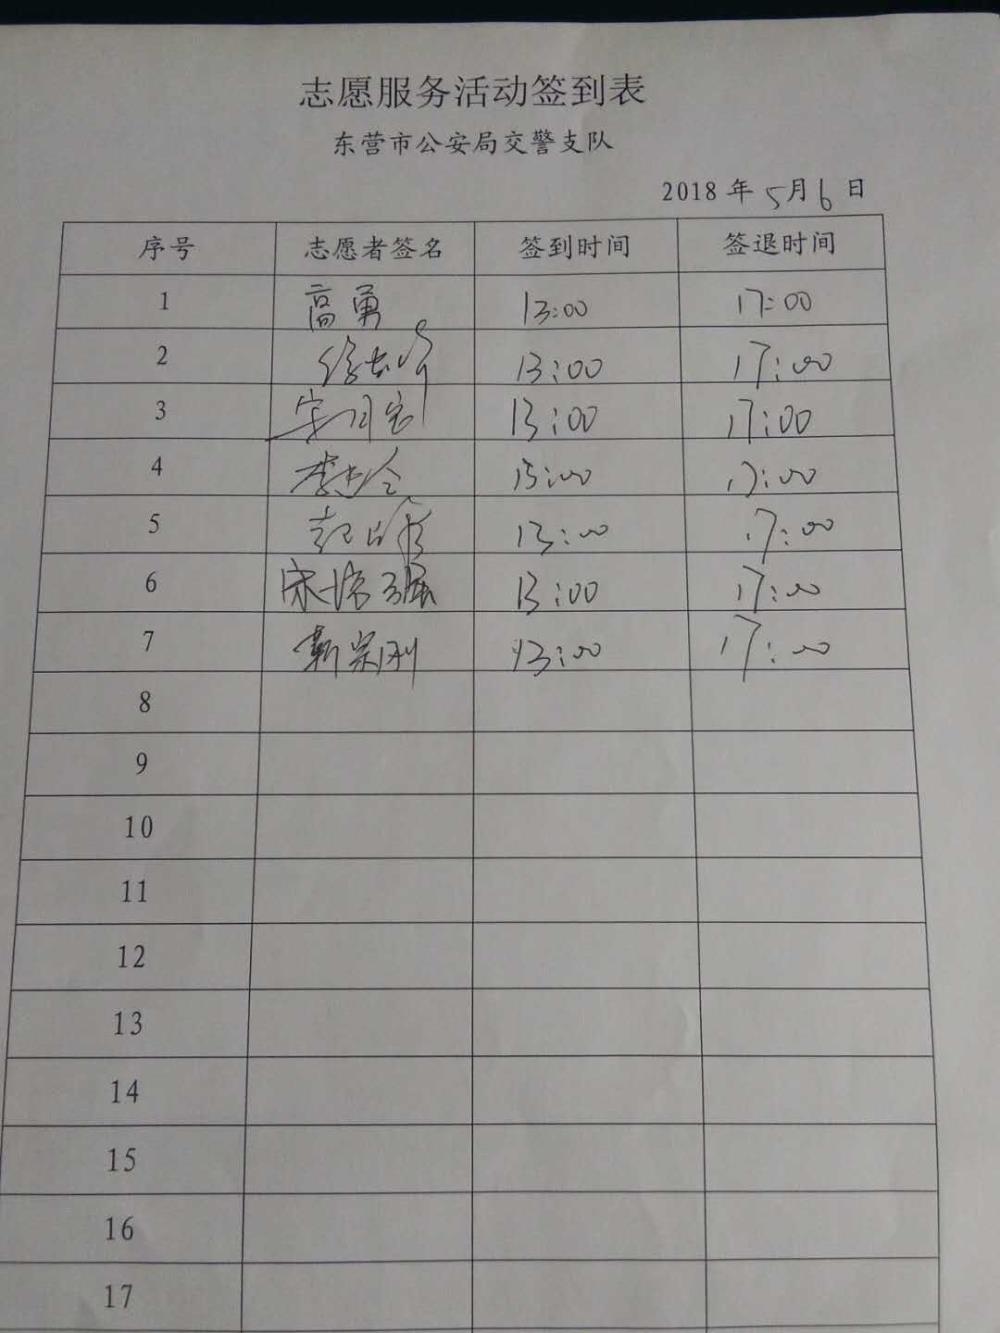 志愿服务活动签到表
东营市公安局交警支队
2018 年 5月 6 日
序号 志愿者签名 签到时间 签退时间
1 高勇 13:00 17:00
2 13:00 17:00
3 13:00 17:00
4 13:00 17:00
5 13:00 17:00
6 宋培强 13:00 17:00
7 靳宗刚 13:00 17:00
8
9
10
11
12
13
14
15
16
17